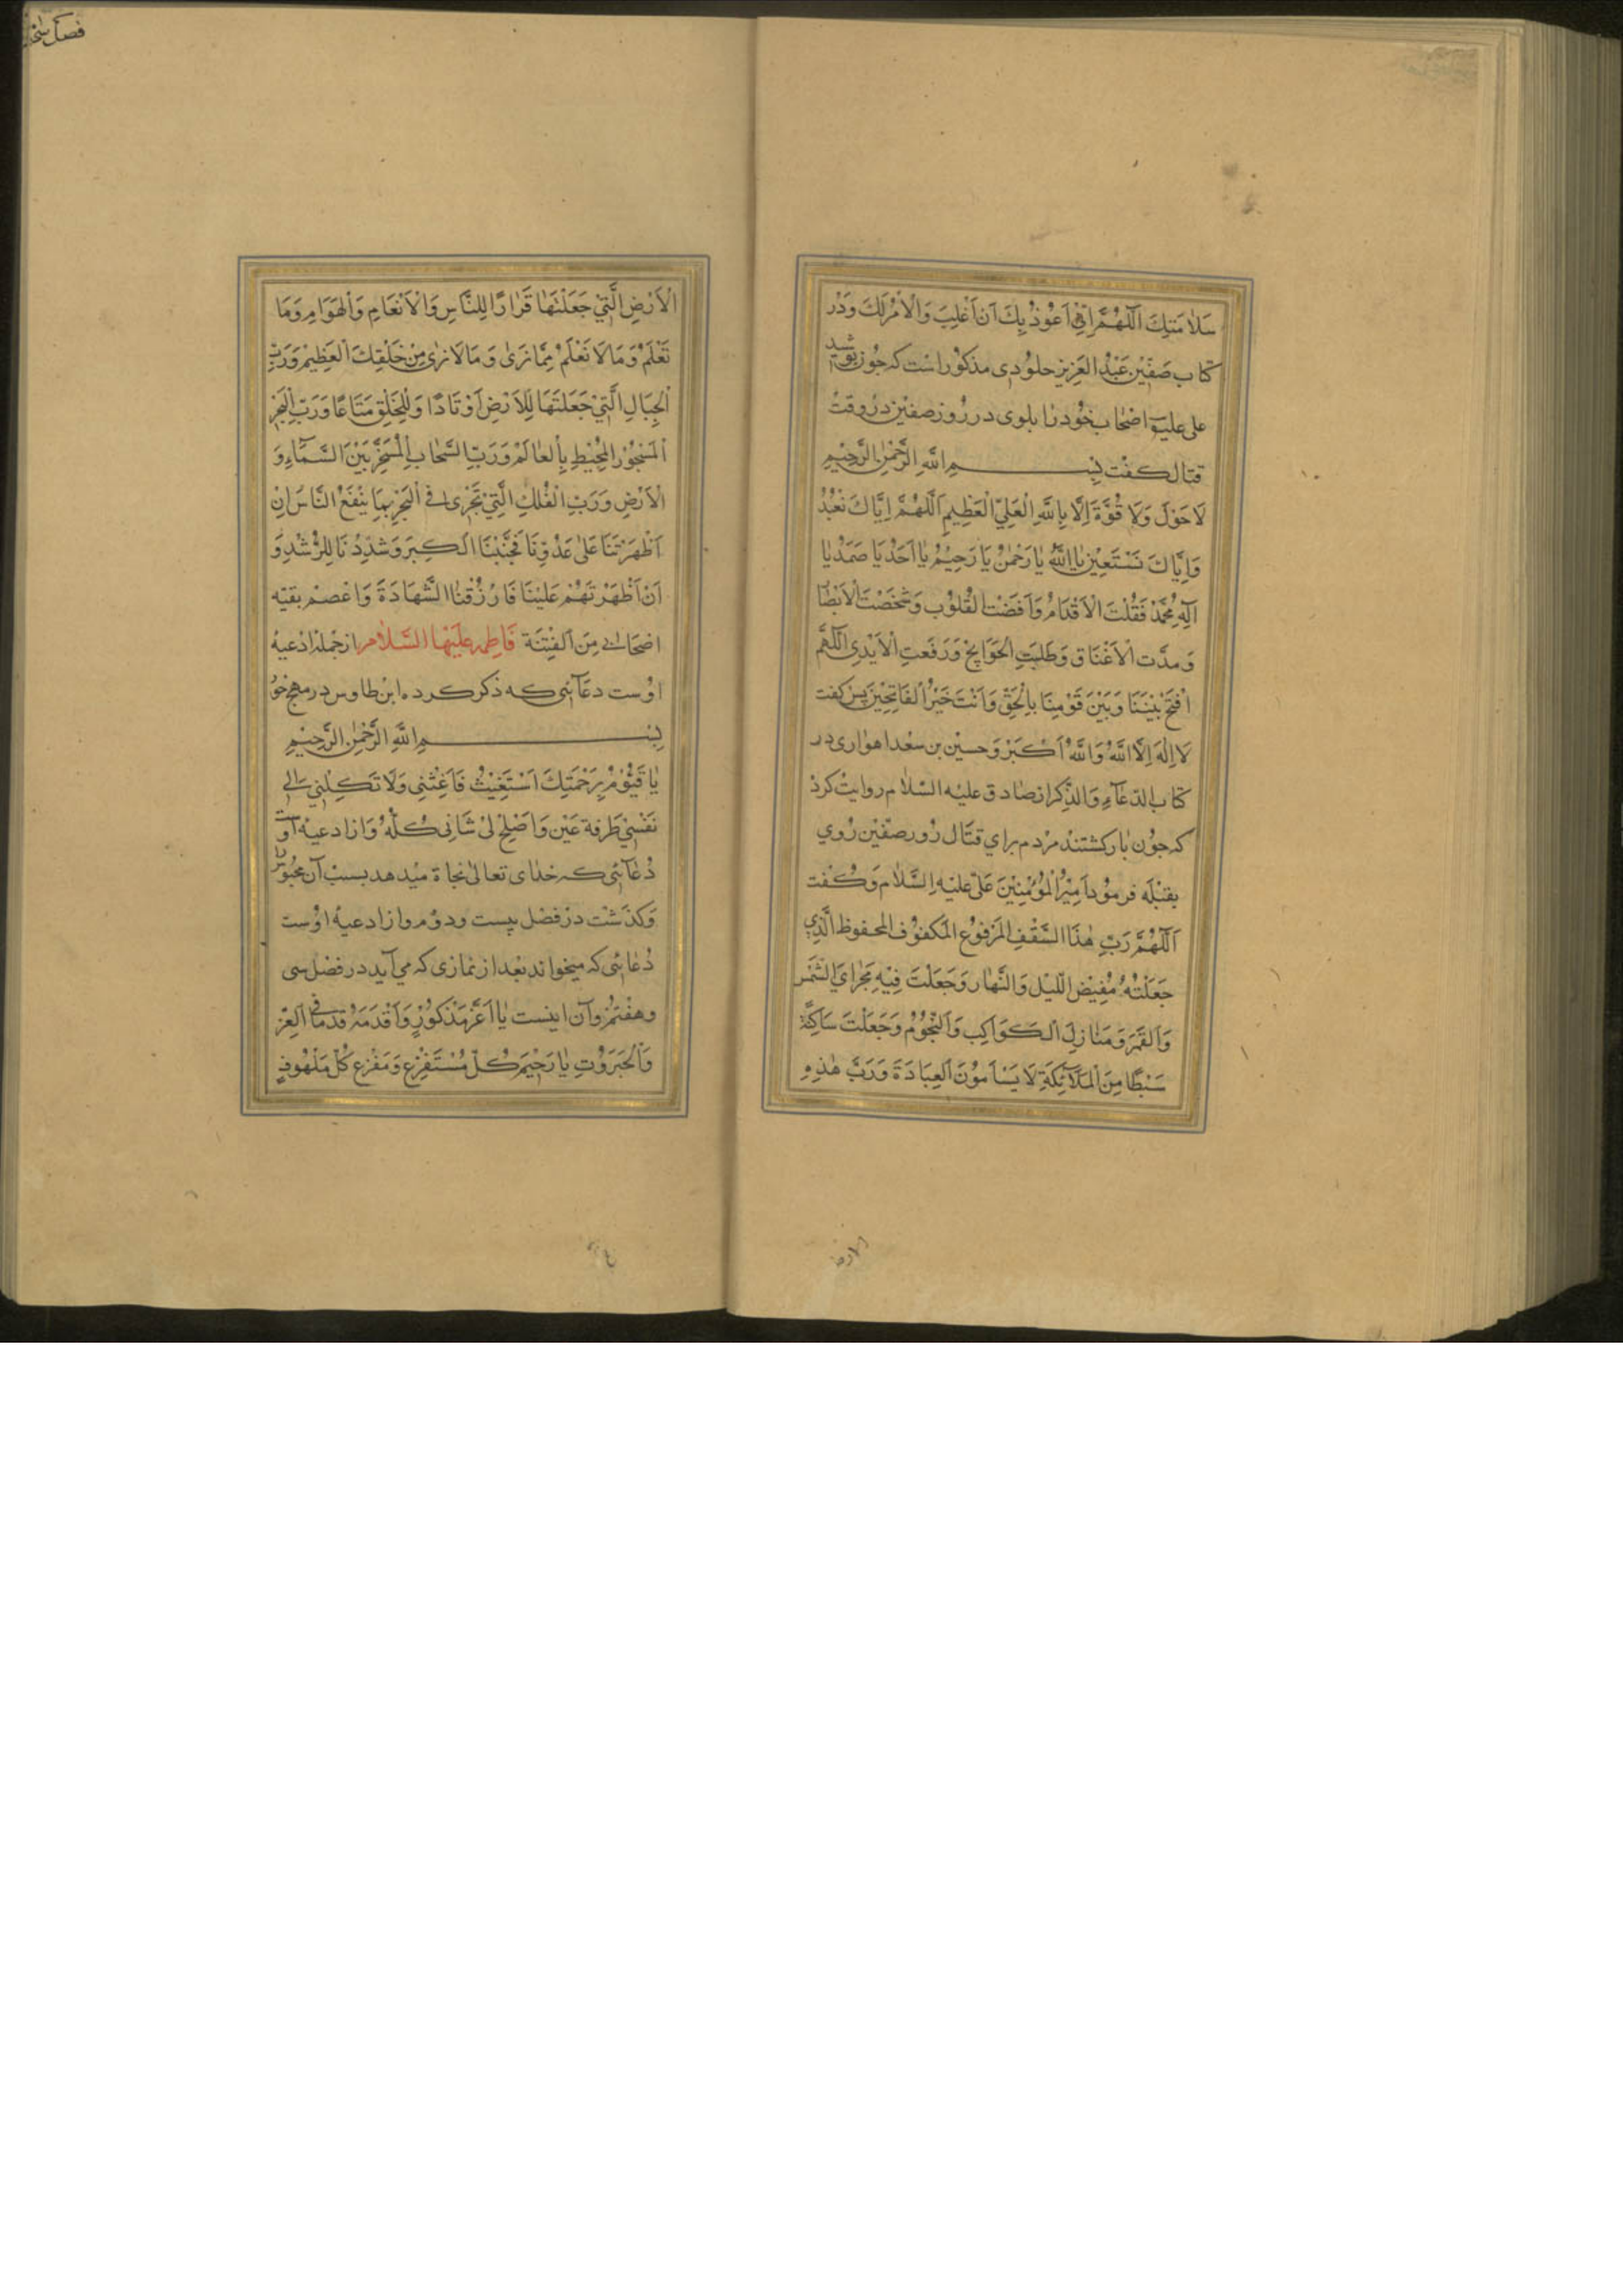 سَلَامَتِكَ اَللّٰهُمَّ اِنّى اَعُوذُ بِكَ اَنْ اُغْلَبَ وَالْاَمْرُ لَكَ وَدَرْ
كتاب صفّين عَبْدُ العَزيز جلودى مذكور است كه چون پوشيد
على عليه اصحاب خود را بلوى در روز صفين در وقت
قتال گفت بِسْمِ اللّٰهِ الرَّحْمٰنِ الرَّحِيمِ
لَا حَوْلَ وَلَا قُوَّةَ اِلَّا بِاللّٰهِ الْعَلِيِّ الْعَظِيمِ اَللّٰهُمَّ اِيَّاكَ نَعْبُدُ
وَاِيَّاكَ نَسْتَعِينُ يَا اَللّٰهُ يَا رَحْمٰنُ يَا رَحِيمُ يَا اَحَدُ يَا صَمَدُ يَا
اِلٰهَ مُحَمَّدْ نُقِلَتِ الْاَقْدَامُ وَاَفْضَتِ الْقُلُوبُ وَشَخَصَتِ الْاَبْصَارُ
وَمُدَّتِ الْاَعْنَاقُ وَطَلَبَتِ الْحَوَائِجُ وَرُفِعَتِ الْاَيْدِى اَللّٰهُمَّ
افْتَحْ بَيْنَنَا وَبَيْنَ قَوْمِنَا بِالْحَقِّ وَاَنْتَ خَيْرُ الْفَاتِحِينَ پس گفت
لَا اِلٰهَ اِلَّا اللّٰهُ وَاللّٰهُ اَكْبَرْ وَحسين بن سعد اهوازى در
كتاب الدّعاءِ وَالذّكر از صادق عليه السلام روايت كرد
كه چون بازگشتند مردم براى قتال روز صفّين روى
بقبله فرمود اَمِيرُ الْمُؤْمِنِينَ عَلىّ عَلَيْهِ السَّلَام وَگفت
اَللّٰهُمَّ رَبَّ هٰذَا السَّقْفِ الْمَرْفُوعِ الْمَكْفُوفِ الْمَحْفُوظِ الَّذِى
جَعَلْتَهُ مُفِيضَ اللَّيْلِ وَالنَّهَارِ وَجَعَلْتَ فِيهِ مَجْرَاىَ الشَّمْسِ
وَالْقَمَرِ وَمَنَازِلَ الْكَوَاكِبِ وَالنُّجُومِ وَجَعَلْتَ سَاكِنَهُ
سِبْطًا مِنَ الْمَلَائِكَةِ لَا يَسْأَمُونَ الْعِبَادَةَ وَرَبَّ هٰذِهِ
الارض
فصل
الْاَرْضِ الَّتِى جَعَلْتَهَا قَرَارًا لِلنَّاسِ وَالْاَنْعَامِ وَالْهَوَامِ وَمَا
نَعْلَمُ وَمَا لَا نَعْلَمُ مِمَّا نَرَىٰ وَمَا لَا نَرَىٰ مِنْ خَلْقِكَ الْعَظِيمِ وَرَبَّ
الْجِبَالِ الَّتِى جَعَلْتَهَا لِلْاَرْضِ اَوْتَادًا وَلِلْخَلْقِ مَتَاعًا وَرَبَّ الْبَحْرِ
الْمَسْجُورِ الْمُحِيطِ بِالْعَالَمِ وَرَبَّ السَّحَابِ الْمُسَخَّرِ بَيْنَ السَّمَاءِ وَ
الْاَرْضِ وَرَبَّ الْفُلْكِ الَّتِى تَجْرِى فِى الْبَحْرِ بِمَا يَنْفَعُ النَّاسَ اِنْ
اَظْهَرْتَنَا عَلىٰ عَدُوِّنَا فَجَنِّبْنَا الْكِبَرَ وَسَدِّدْنَا لِلرُّشْدِ وَ
اَنْ اَظْهَرْتَهُمْ عَلَيْنَا فَارْزُقْنَا الشَّهَادَةَ وَاعْصِمْ بقيّه
اصْحَابِى مِنَ الْفِتْنَة فَاطِمه عَلَيْهَا السَّلَام از جمله ادعيهٔ
اوست دعائى كه ذكر كرده ابن طاوس در مهج
بِسْمِ اللّٰهِ الرَّحْمٰنِ الرَّحِيمِ
يَا قَيُّومُ بِرَحْمَتِكَ اَسْتَغِيثُ فَاَغِثْنِى وَلَا تَكِلْنِى اِلىٰ
نَفْسِى طَرْفَةَ عَيْنٍ وَاَصْلِحْ لِى شَانِى كُلَّهُ وَاز ادعيهٔ اوست
دُعائى كه خداى تعالىٰ نجاة ميدهد بسبب آن محبوس را
وَگذشت در فصل بيست ودوم واز ادعيهٔ اوست
دُعائى كه ميخواند بعد از نمازى كه مى آيد در فصل سى
وهفتم وآن اينست يَا اَعَزَّ مَذْكُورٍ وَاَقْدَمَهُ قِدَمًا فِى الْعِزِّ
وَالْجَبَرُوتِ يَا رَحِيمَ كُلِّ مُسْتَفْزِعٍ وَمَفْزَعَ كُلِّ مَلْهُوفٍ